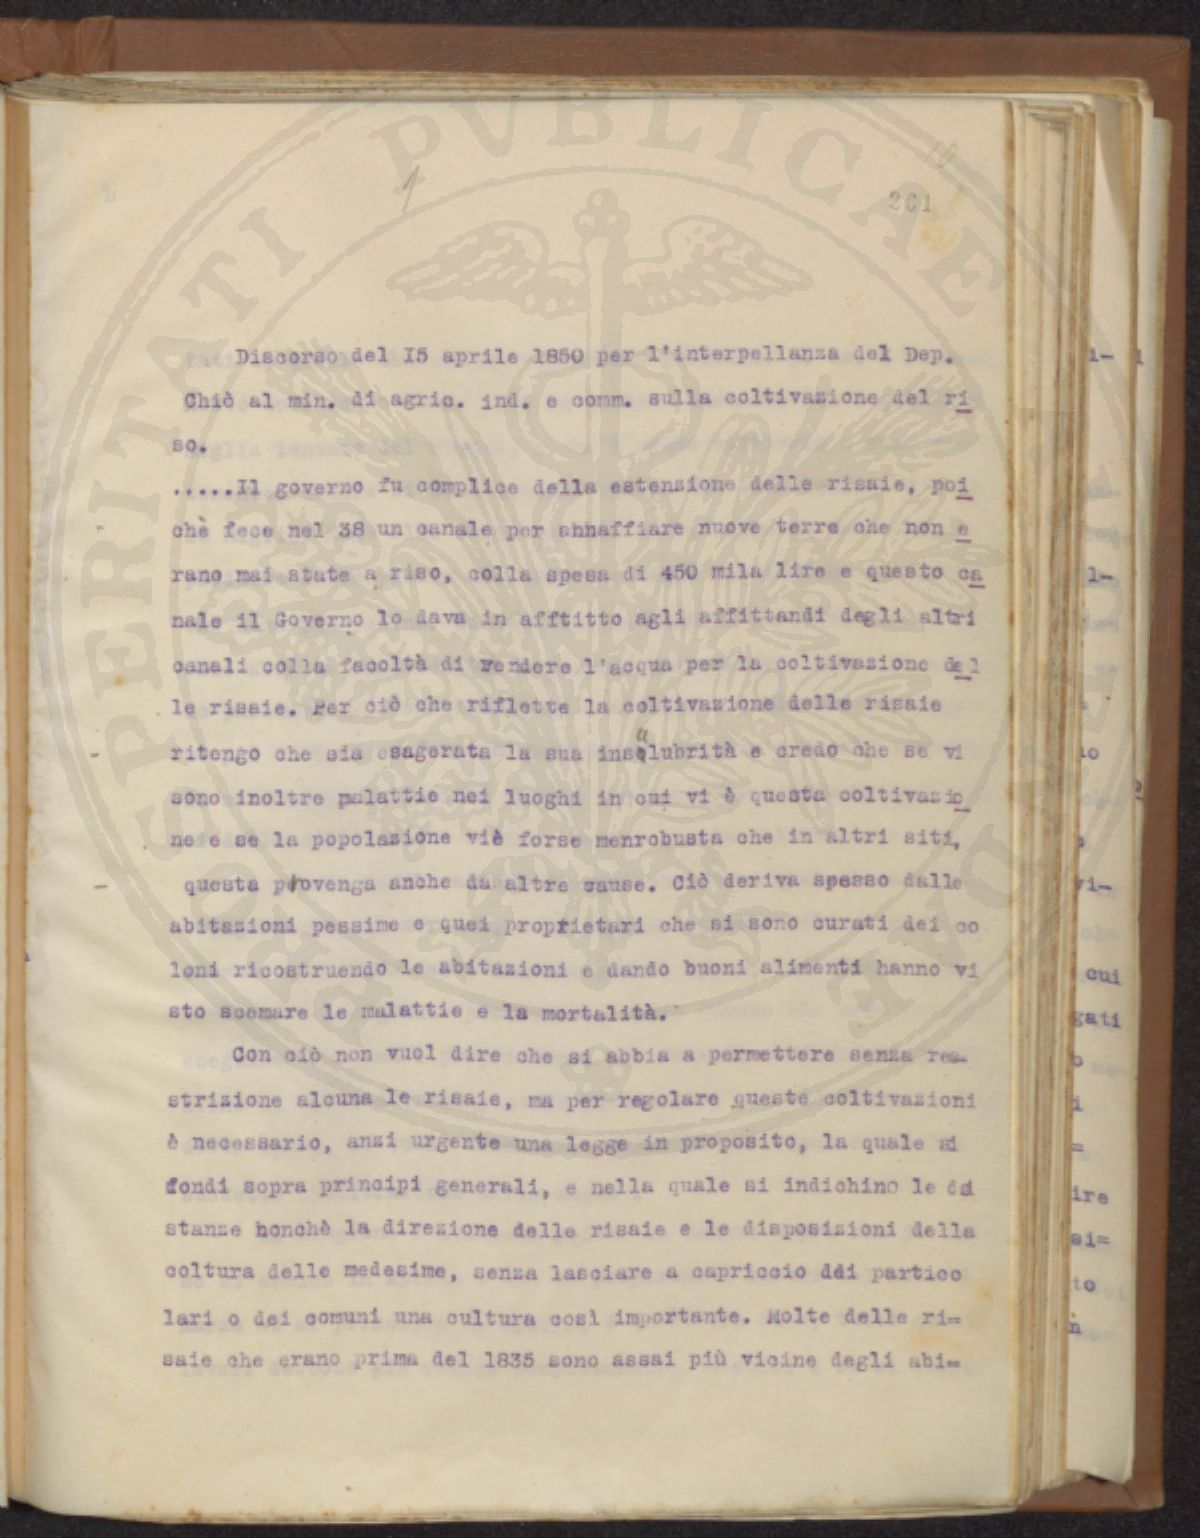 PROSPERITATI PVBLICAE AVGENDAE
1
10
261
Discorso del I5 aprile 1850 per l'interpellanza del Dep.
Chiò al min. di agric. ind. e comm. sulla coltivazione del ri
so.
.....Il governo fu complice della estenzione delle risaie, poi
chè fece nel 38 un canale per ahnaffiare nuove terre che non e
rano mai state a riso, colla spesa di 450 mila lire e questo ca
nale il Governo lo dava in afftitto agli affittandi degli altri
canali colla facoltà di vendere l'acqua per la coltivazione del
le risaie. Per ciò che riflette la coltivazione delle risaie
ritengo che sia esagerata la sua insalubrità e credo che se vi
sono inoltre malattie nei luoghi in cui vi è questa coltivazio
ne e se la popolazione viè forse menrobusta che in altri siti,
questa provenga anche da altre cause. Ciò deriva spesso dalle
abitazioni pessime e quei proprietari che si sono curati dei co
loni ricostruendo le abitazioni e dando buoni alimenti hanno vi
sto scemare le malattie e la mortalità.
Con ciò non vuol dire che si abbia a permettere senza res-
strizione alcuna le risaie, ma per regolare queste coltivazioni
è necessario, anzi urgente una legge in proposito, la quale si
fondi sopra principi generali, e nella quale si indichino le di
stanze nonchè la direzione delle risaie e le disposizioni della
coltura delle medesime, senza lasciare a capriccio ddi partico
lari o dei comuni una cultura così importante. Molte delle ri=
saie che erano prima del 1835 sono assai più vicine degli abi=